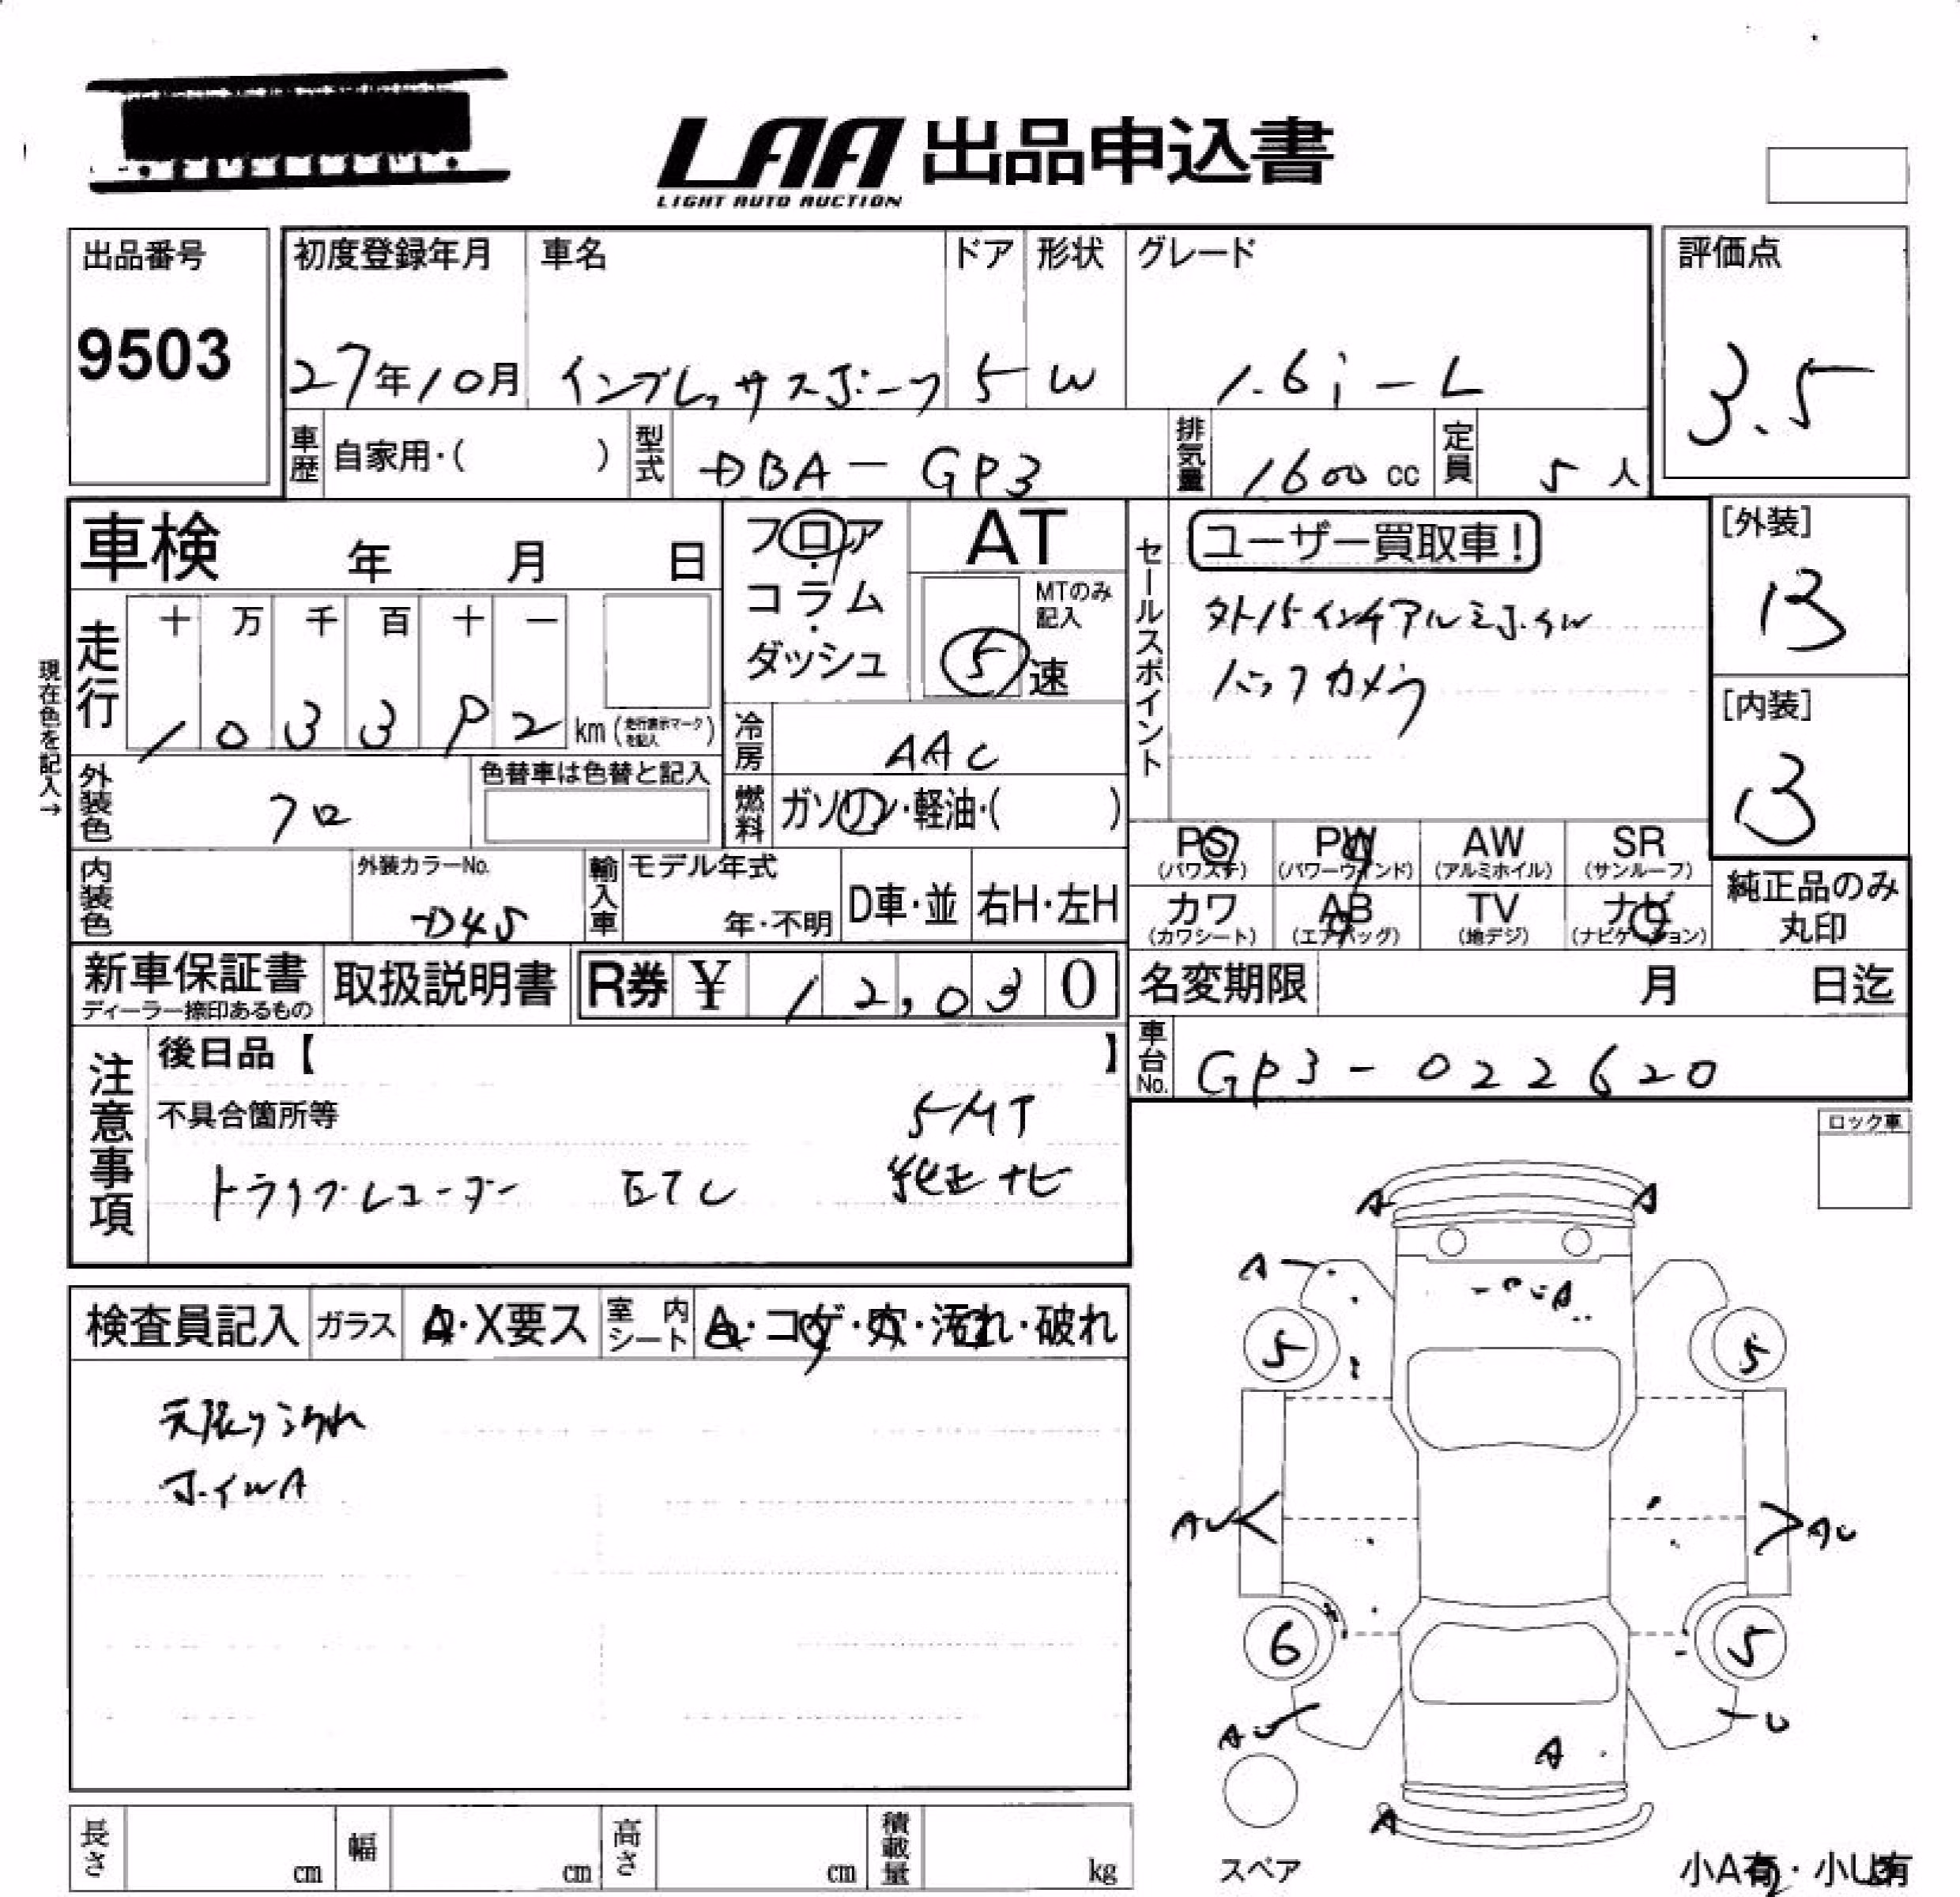 LAA 出品申込書
LIGHT AUTO AUCTION
出品番号
9503
初度登録年月 車名 ドア 形状 グレード
27年10月 インプレッサスポーツ 5 W 1.6i-L
評価点
3.5
車歴 自家用・( ) 型式 DBA-GP3 排気量 1600cc 定員 5人
車検 年 月 日
フロア・コラム・ダッシュ
AT
MTのみ記入
5速
セールスポイント
ユーザー買取車!
外15インチアルミホイル
バックカメラ
[外装]
B
[内装]
B
現在色を記入→
走行 十 万 千 百 十 一
km(走行表示マークを記入)
冷房 AAC
外装色 クロ
色替車は色替と記入
燃料 ガソリン・軽油・( )
PS PW AW SR
(パワステ) (パワーウインド) (アルミホイル) (サンルーフ)
カワ AB TV ナビ
(カワシート) (エアバッグ) (地デジ) (ナビゲーション)
純正品のみ丸印
内装色
外装カラーNo.
D4S
輸入車 モデル年式
年・不明 D車・並 右H・左H
新車保証書
ディーラー捺印あるもの
取扱説明書
R券 ¥ 12,030
名変期限 月 日迄
車台No. GP3-022620
注意事項
後日品【 】
不具合箇所等
5MT
ドライブレコーダー ETC 純正ナビ
ロック車
検査員記入 ガラス A・X要ス 室内シート A・コゲ・穴・汚れ・破れ
天張りよごれ
ホイルA
A A
A
A
5 5
AU AU
6 5
AU U
A
A
スペア
長さ cm 幅 cm 高さ cm 積載量 kg
小A有・小U有